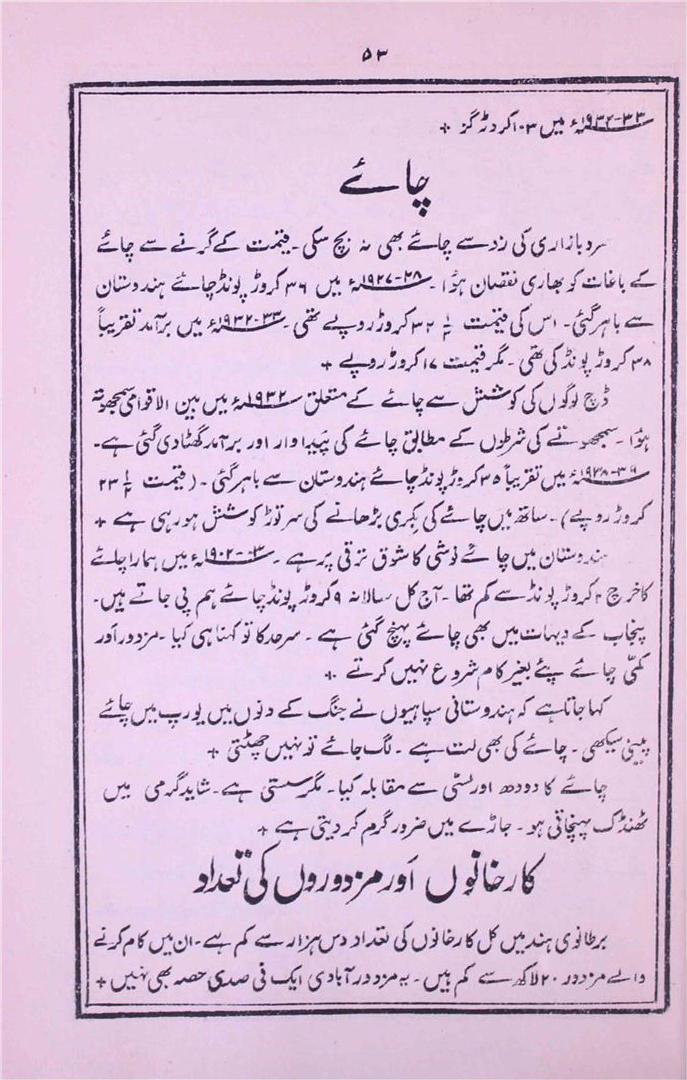 ۵۳
۳۳-۱۹۳۲ء میں ۱۰۳ کروڑ گز +
چائے
سرد بازاری کی زد سے چائے بھی نہ بچ سکی۔ قیمت کے گرنے سے چائے
کے باغات کو بھاری نقصان ہؤا۔ ۲۸-۱۹۲۷ء میں ۳۶ کروڑ پونڈ چائے ہندوستان
سے باہر گئی۔ اس کی قیمت ۳۲ ۱/۲ کروڑ روپے تھی۔ ۳۳-۱۹۳۲ء میں برآمد تقریباً
۳۸ کروڑ پونڈ کی تھی۔ مگر قیمت ۱۷ کروڑ روپے +
ڈچ لوگوں کی کوشش سے چائے کے متعلق ۱۹۳۲ء میں بین الاقوامی سمجھوتہ
ہؤا۔ سمجھوتے کی شرطوں کے مطابق چائے کی پیداوار اور برآمد گھٹا دی گئی ہے۔
میں تقریباً ۳۵ کروڑ پونڈ چائے ہندوستان سے باہر گئی۔ (قیمت ۲۳ ۱/۲
کروڑ روپے)۔ ساتھ میں چائے کی بکری بڑھانے کی سرتوڑ کوشش ہو رہی ہے +
ہندوستان میں چائے نوشی کا شوق ترقی پر ہے۔ ۰۳-۱۹۰۲ء میں ہمارا چائے
کا خرچ ۲ کروڑ پونڈ سے کم تھا۔ آج کل سالانہ ۹ کروڑ پونڈ چائے ہم پی جاتے ہیں۔
پنجاب کے دیہات میں بھی چائے پہنچ گئی ہے۔ سرحد کا تو کہنا ہی کیا۔ مزدور اَور
کمّی چائے پیئے بغیر کام شروع نہیں کرتے +
کہا جاتا ہے کہ ہندوستانی سپاہیوں نے جنگ کے دنوں میں یورپ میں چائے
پینی سیکھی۔ چائے کی بھی لت ہے۔ لگ جائے تو نہیں چھٹتی +
چائے کا دودھ اور لسّی سے مقابلہ کیا۔ مگر سستی ہے۔ شاید گرمی میں
ٹھنڈک پہنچاتی ہو۔ جاڑے میں ضرور گرم کر دیتی ہے +
کارخانوں اَور مزدوروں کی تعداد
برطانوی ہند میں کل کارخانوں کی تعداد دس ہزار سے کم ہے۔ ان میں کام کرنے
والے مزدور ۲۰ لاکھ سے کم ہیں۔ یہ مزدور آبادی ایک فی صدی حصہ بھی نہیں +